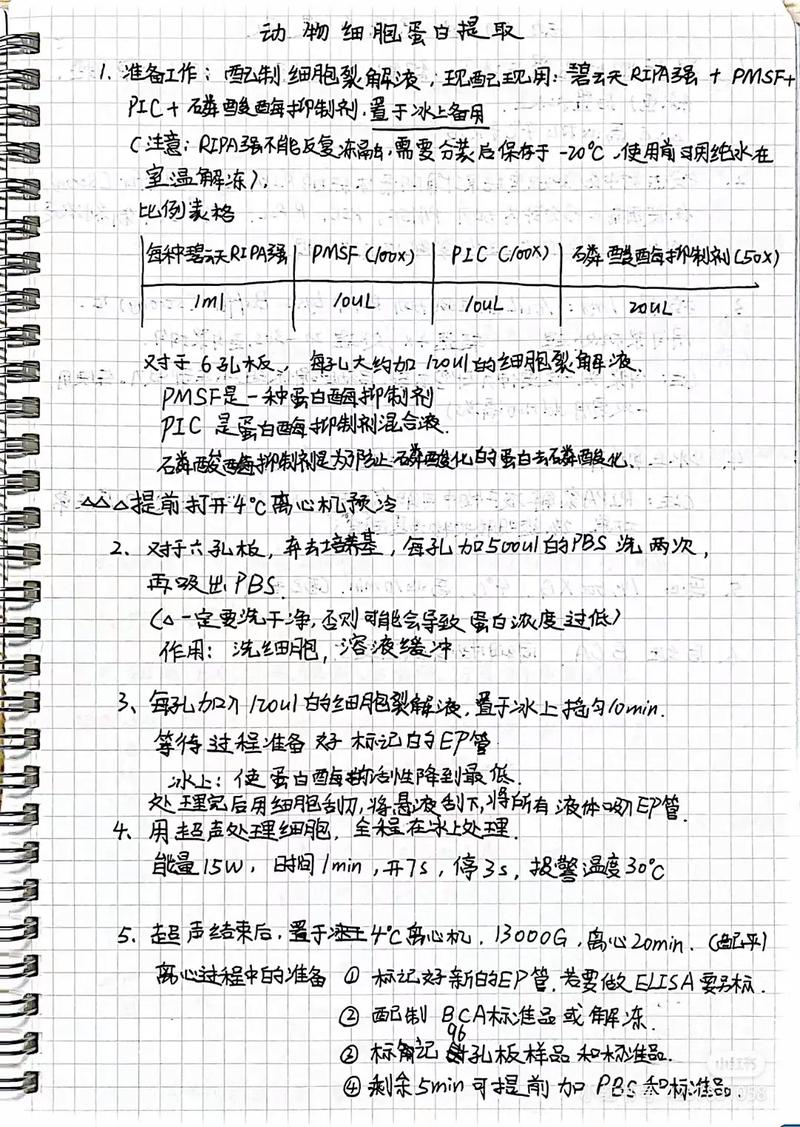 动物细胞蛋白提取
1. 准备工作：配制细胞裂解液，现配现用：碧云天RIPA强 + PMSF+
PIC+磷酸酶抑制剂，置于冰上备用
(注意：RIPA强不能反复冻融，需要分装后保存于-20℃，使用前可用纯水在
室温解冻)
比例表格
每种碧云天RIPA强 PMSF (100X) PIC (100X) 磷酸酶抑制剂(50X)
1ml 10uL 10uL 20uL
对于6孔板，每孔大约加120ul的细胞裂解液.
PMSF是一种蛋白酶抑制剂
PIC是蛋白酶抑制剂混合液.
磷酸酶抑制剂是为防止磷酸化的蛋白去磷酸化.
△△△提前打开4℃离心机预冷
2. 对于六孔板，弃去培养基，每孔加500ul的PBS洗两次，
再吸出PBS.
(△一定要洗干净，否则可能会导致蛋白浓度过低)
作用：洗细胞，溶液缓冲
3、每孔加入120ul的细胞裂解液，置于冰上摇匀10min.
等待过程准备好标记的EP管
冰上：使蛋白酶的活性降到最低.
处理完后用细胞刮刀，将悬液刮下，将所有液体吸入EP管.
4、用超声处理细胞，全程在冰上处理.
能量15W，时间1min，开7s，停3s，报警温度30℃
5. 超声结束后，置于4℃离心机，13000G，离心20min. (配平)
离心过程中的准备 ① 标记好新的EP管，若要做ELISA要另标.
② 配制BCA标准品或解冻.
③ 标记96孔板样品和标准品.
④ 剩余5min可提前加PBS和标准品.
小红书